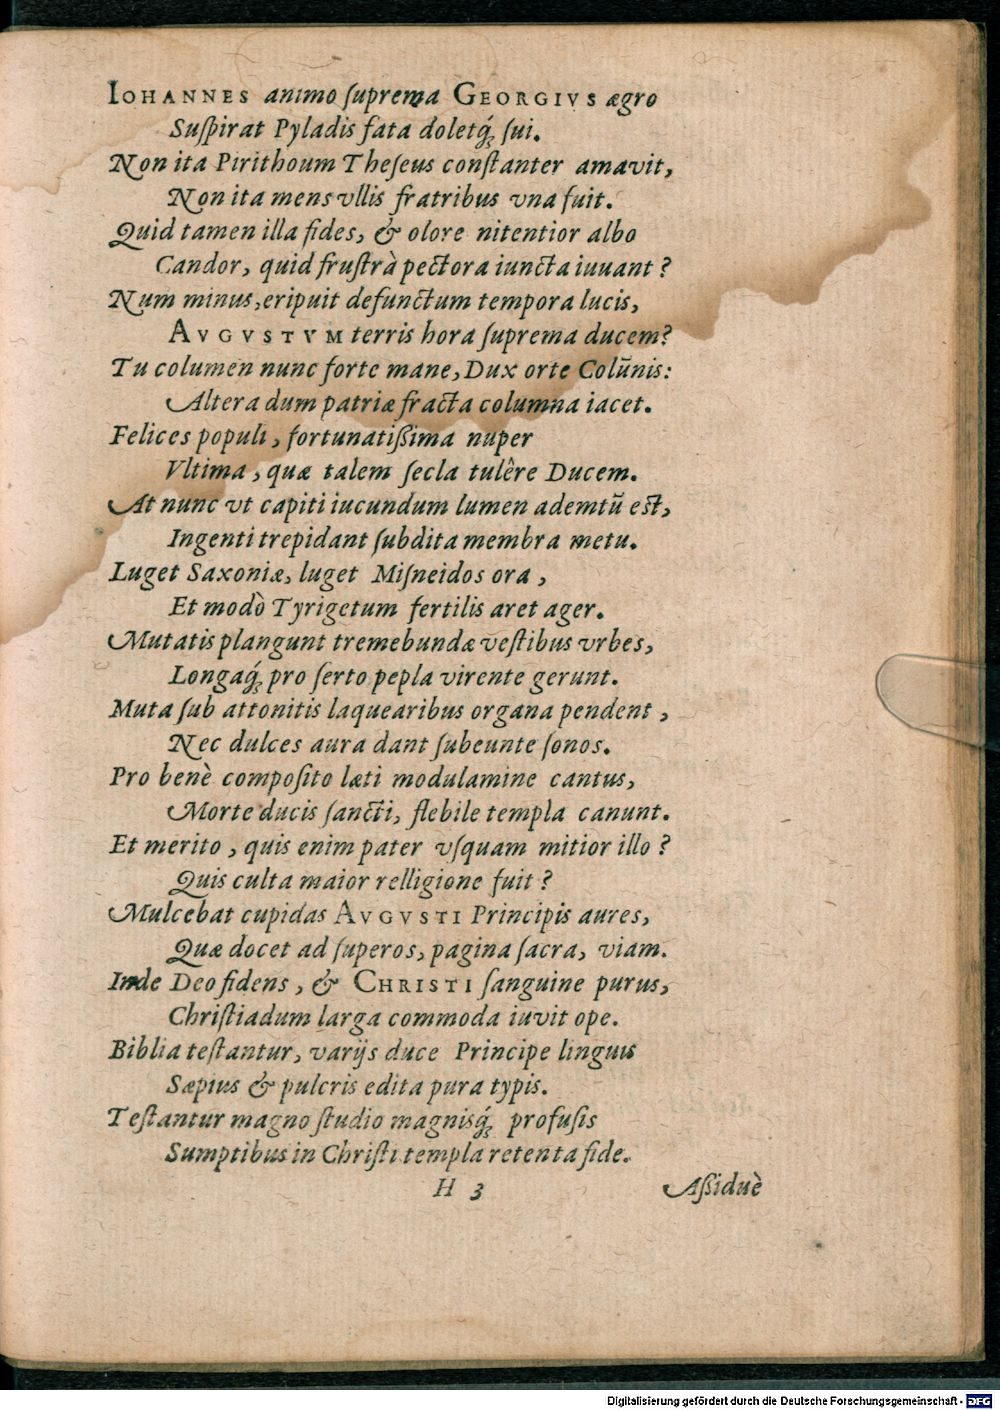 IOHANNES animo ſuprema GEORGIVS ægro
Suſpirat Pyladis fata doletq́; ſui.
Non ita Pirithoum Theſeus conſtanter amavit,
Non ita mens vllis fratribus vna fuit.
Quid tamen illa fides, & olore nitentior albo
Candor, quid fruſtrà pectora iuncta iuuant?
Num minus, eripuit defunctum tempora lucis,
AVGVSTVM terris hora ſuprema ducem?
Tu columen nunc forte mane, Dux orte Colūnis:
Altera dum patriæ fracta columna iacet.
Felices populi, fortunatiſſima nuper
Vltima, quæ talem ſecla tulêre Ducem.
At nunc vt capiti iucundum lumen ademtū eſt,
Ingenti trepidant ſubdita membra metu.
Luget Saxoniæ, luget Miſneidos ora,
Et modò Tyrigetum fertilis aret ager.
Mutatis plangunt tremebundæ veſtibus vrbes,
Longaq́; pro ſerto pepla virente gerunt.
Muta ſub attonitis laquearibus organa pendent,
Nec dulces aura dant ſubeunte ſonos.
Pro benè compoſito læti modulamine cantus,
Morte ducis ſancti, flebile templa canunt.
Et merito, quis enim pater vſquam mitior illo?
Quis culta maior relligione fuit?
Mulcebat cupidas AVGVSTI Principis aures,
Quæ docet ad ſuperos, pagina ſacra, viam.
Inde Deo fidens, & CHRISTI ſanguine purus,
Chriſtiadum larga commoda iuvit ope.
Biblia teſtantur, varijs duce Principe linguis
Sæpius & pulcris edita pura typis.
Teſtantur magno ſtudio magnisq́; profuſis
Sumptibus in Chriſti templa retenta fide.
H 3 Aſſiduè
Digitalisierung gefördert durch die Deutsche Forschungsgemeinschaft - DFG